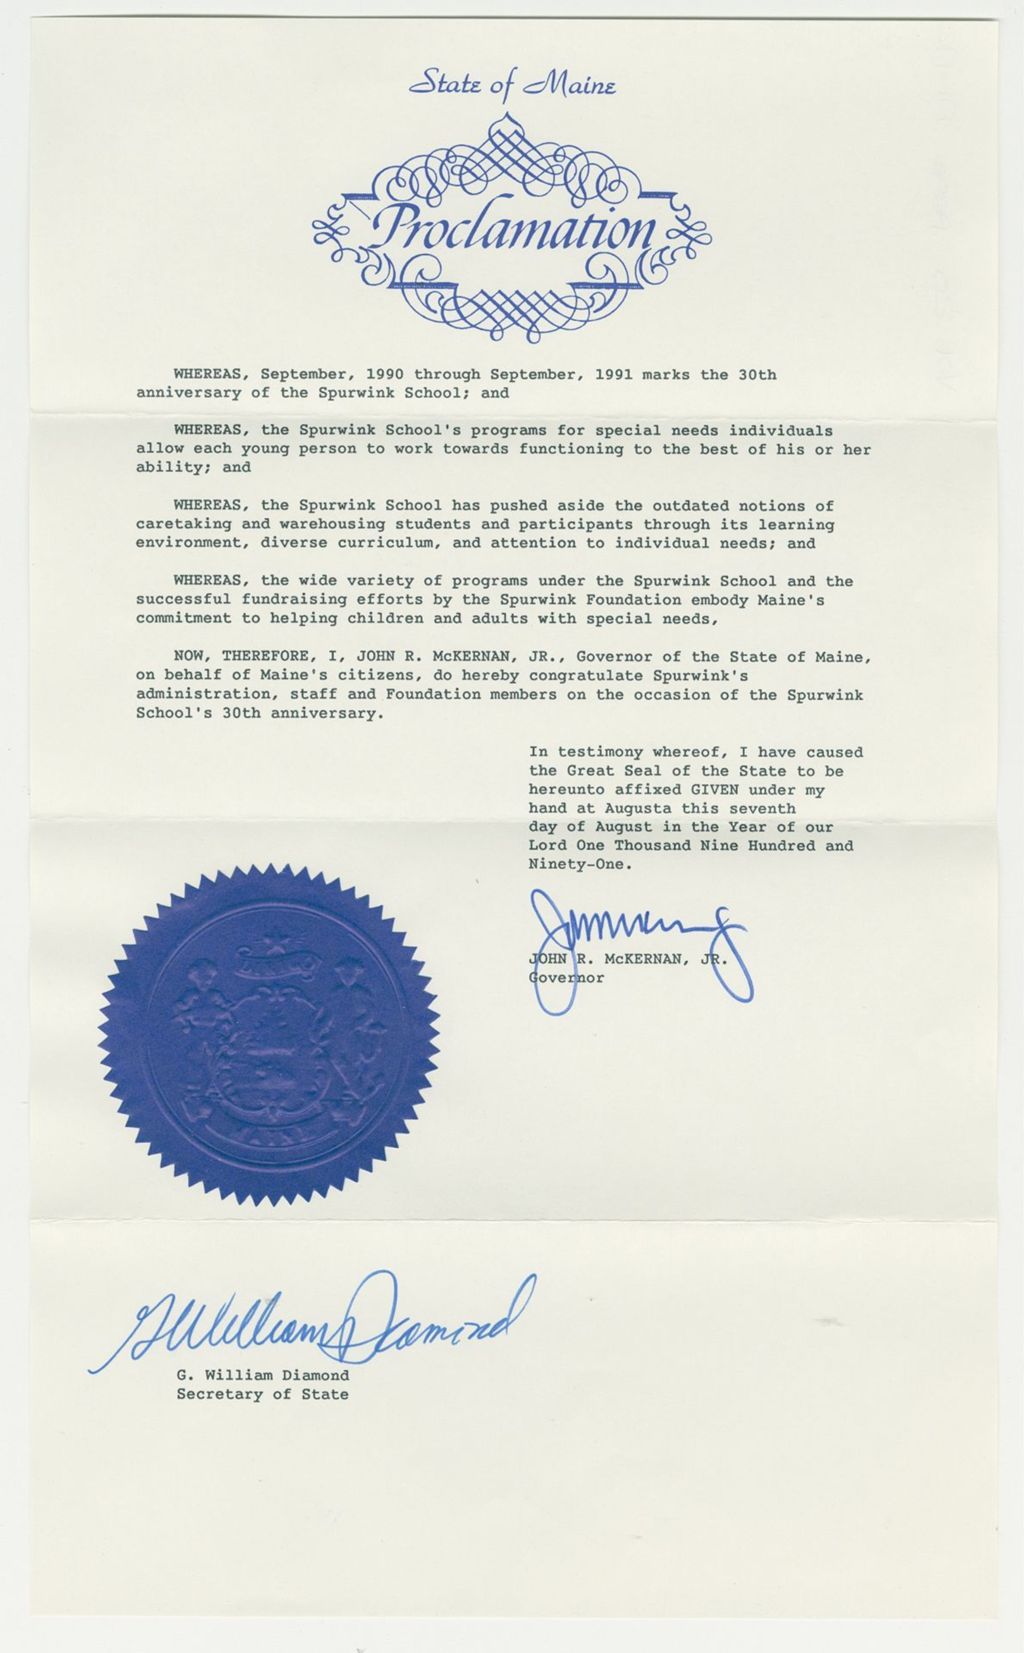 State of Maine
Proclamation
WHEREAS, September, 1990 through September, 1991 marks the 30th
anniversary of the Spurwink School; and
WHEREAS, the Spurwink School's programs for special needs individuals
allow each young person to work towards functioning to the best of his or her
ability; and
WHEREAS, the Spurwink School has pushed aside the outdated notions of
caretaking and warehousing students and participants through its learning
environment, diverse curriculum, and attention to individual needs; and
WHEREAS, the wide variety of programs under the Spurwink School and the
successful fundraising efforts by the Spurwink Foundation embody Maine's
commitment to helping children and adults with special needs,
NOW, THEREFORE, I, JOHN R. McKERNAN, JR., Governor of the State of Maine,
on behalf of Maine's citizens, do hereby congratulate Spurwink's
administration, staff and Foundation members on the occasion of the Spurwink
School's 30th anniversary.
In testimony whereof, I have caused
the Great Seal of the State to be
hereunto affixed GIVEN under my
hand at Augusta this seventh
day of August in the Year of our
Lord One Thousand Nine Hundred and
Ninety-One.
JOHN R. McKERNAN, JR.
Governor
MAINE
G William Diamond
G. William Diamond
Secretary of State